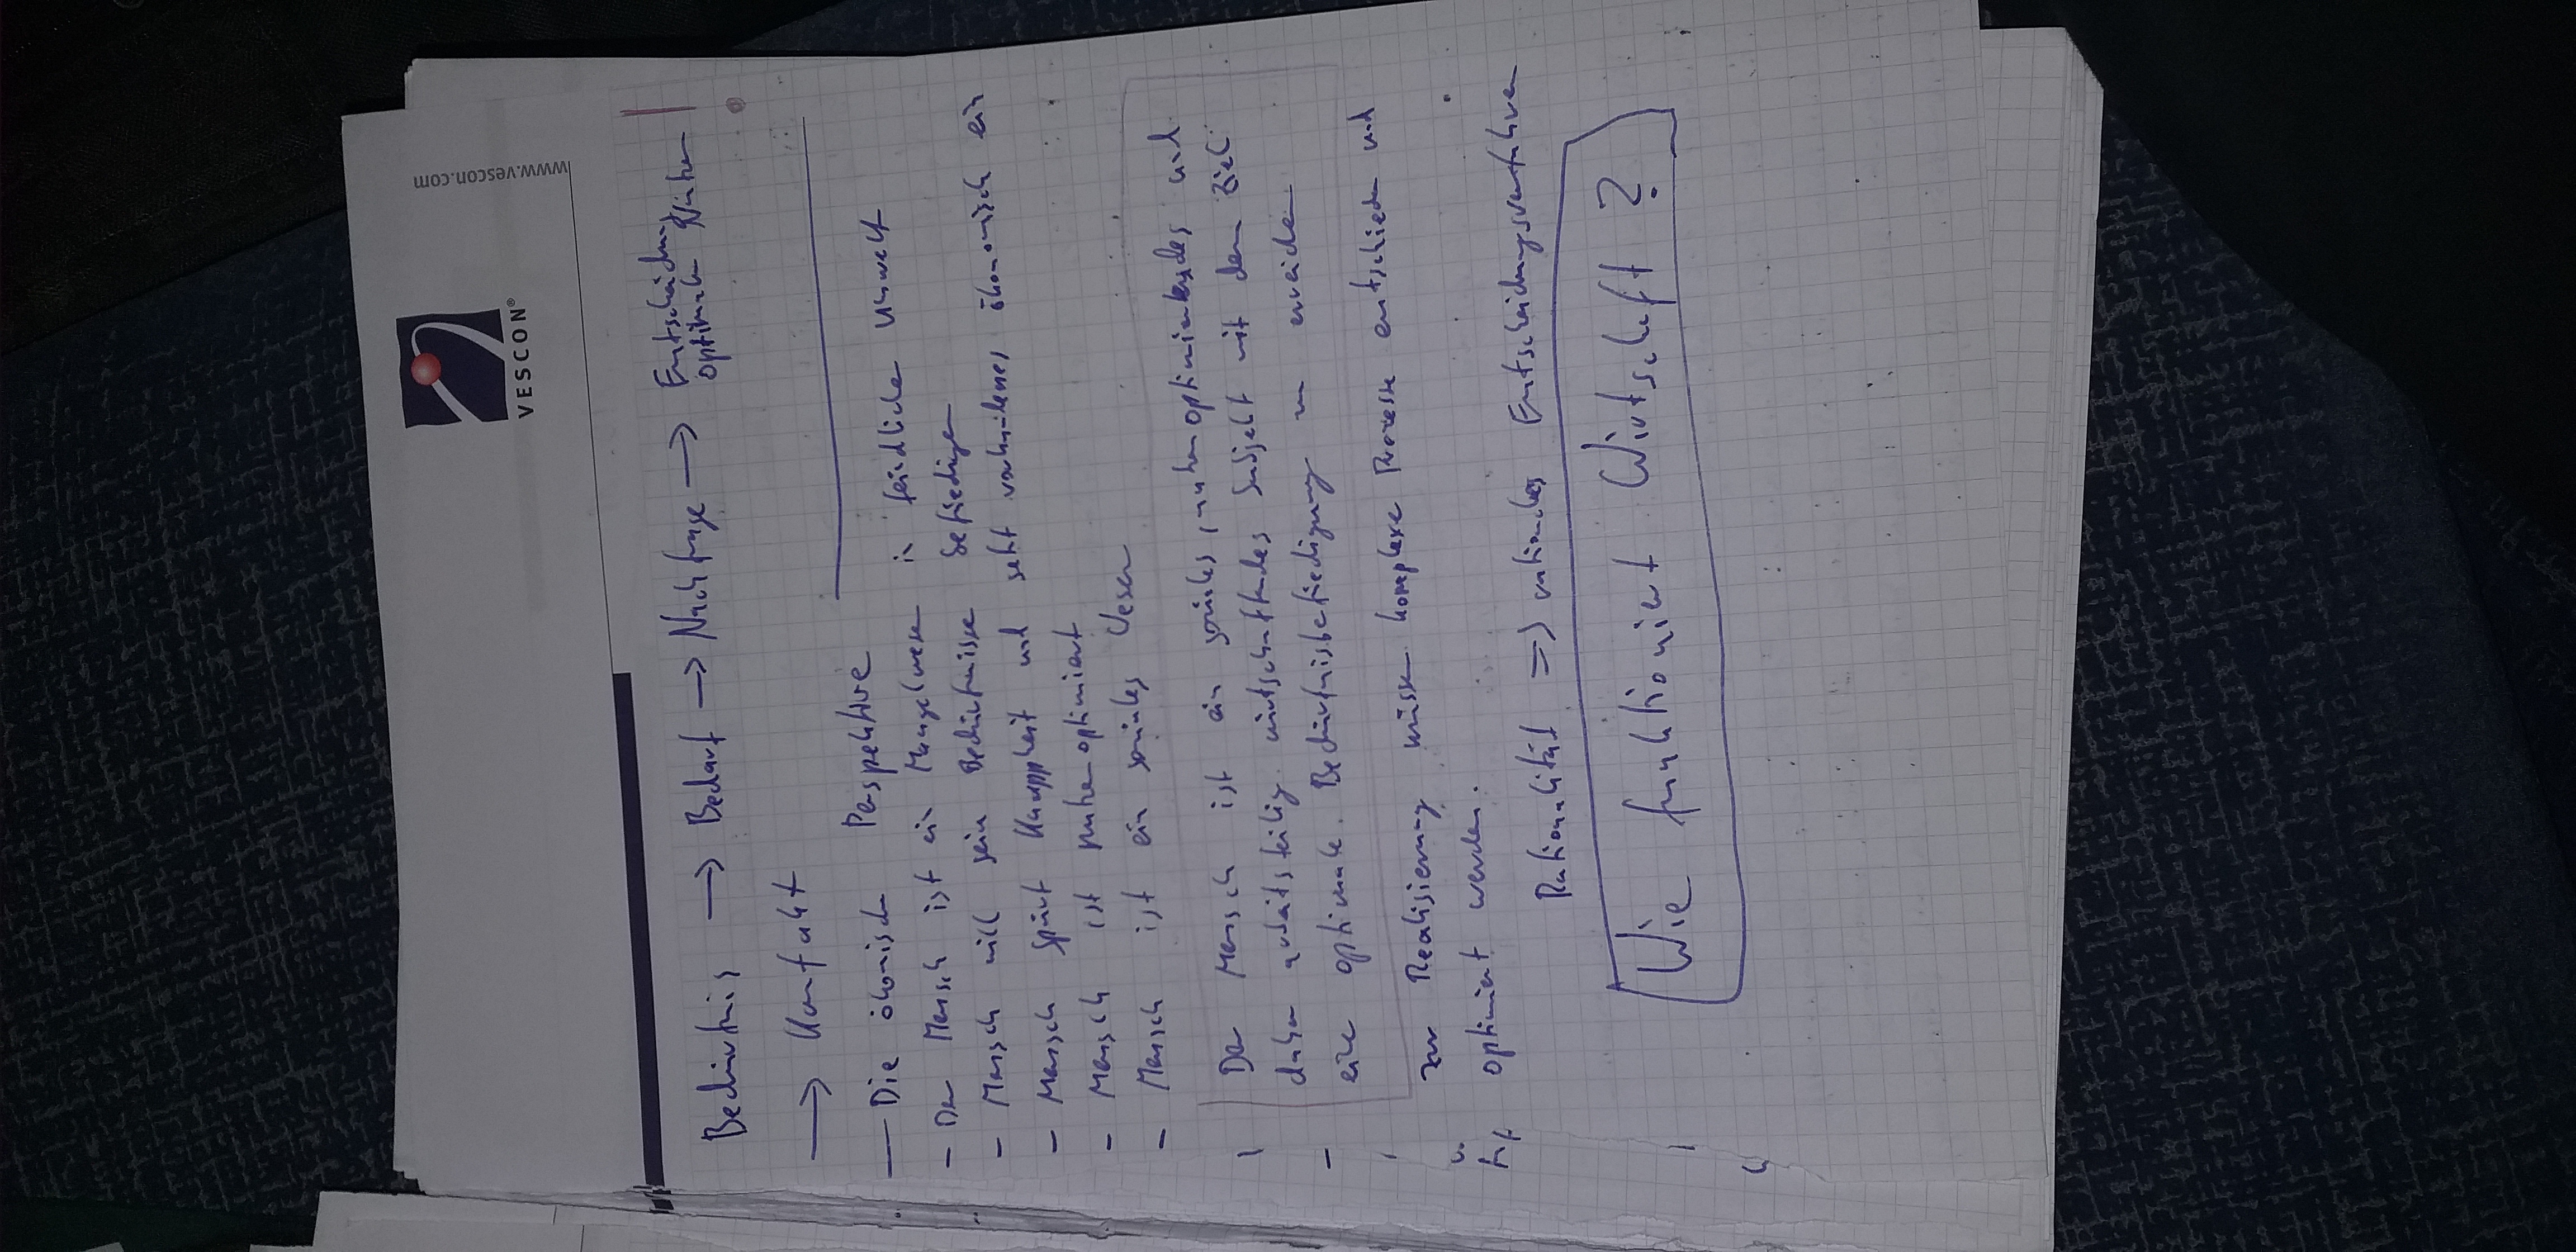 VESCON®
www.vescon.com
Bedürfnis → Bedarf → Nachfrage → Entscheidung
optimaler Nutzen
→ Kontakt
— Die ökonische Perspektive
- Der Mensch ist ein Mangelwesen in feindlicher Umwelt
- Mensch will sein Bedürfnisse befriedigen
- Mensch spürt Knappheit und setzt vorhandenes ökonomisch ein
- Mensch ist nutzenoptimiert
- Mensch ist ein soziales Wesen
Der Mensch ist ein soziales, nutzenoptimierendes und
daher arbeitsteilig wirtschaftendes Subjekt mit dem Ziel
eine optimale Bedürfnisbefriedigung zu erreichen
Zur Realisierung müssen komplexe Prozesse entschieden und
optimiert werden.
Rationalität => rationales Entscheidungsverfahren
Wie funktioniert Wirtschaft ?